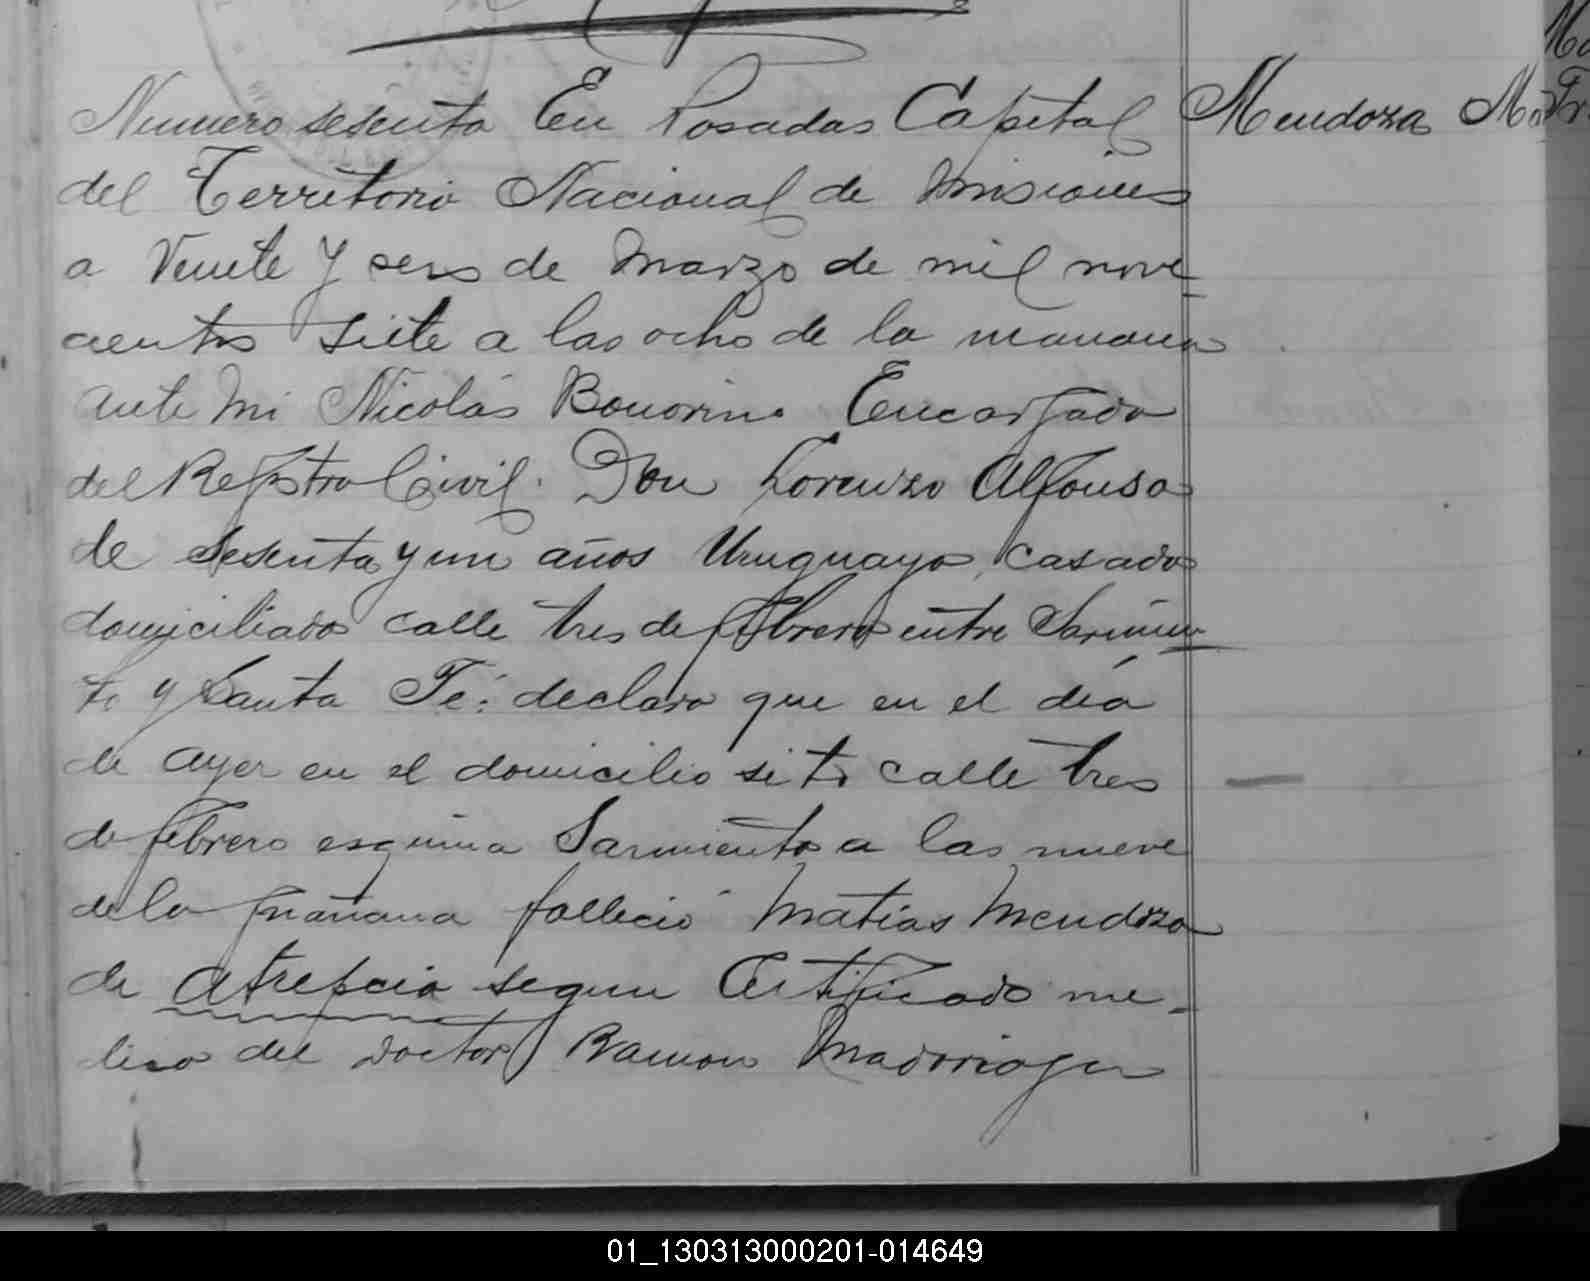 Numero sesenta En Posadas Capital
Mendoza
del Territorio Nacional de Misiones
a Veinte y seis de Marzo de mil nove
cientos siete a las ocho de la manana
ante mi Nicolás Bonorino Encargado
del Registro Civil. Don Lorenzo Alfonso
de sesenta y un años Uruguayo, casado
domiciliado calle tres de febrero entre Sarmien
to y Santa Fé: declaro que en el día
de ayer en el domicilio sito calle tres
de febrero esquina Sarmiento a las nueve
de la mañana falleció Matías Mendoza
de atrepcia segun Certificado me-
dico del Doctor Ramon Madariaga
01_130313000201-014649